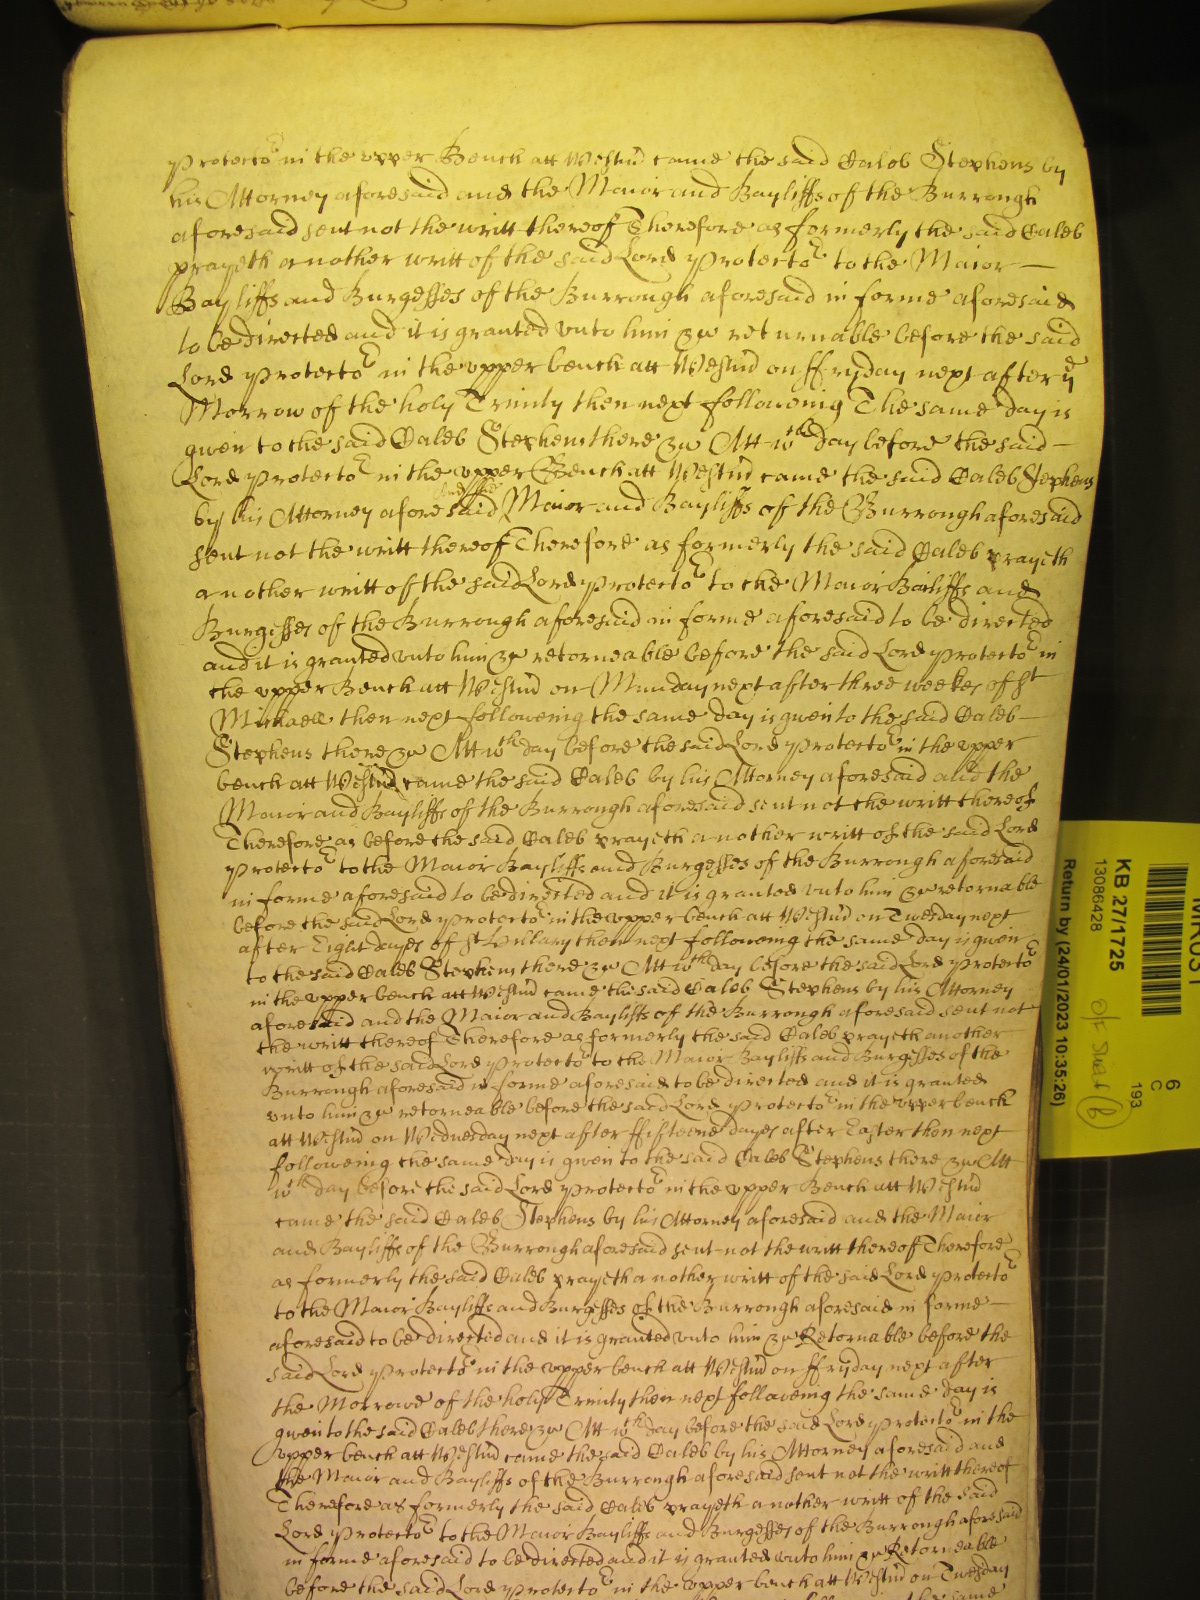 Protector in the vpper Bench att Westm̃ came the said Caleb Stephens by
his Attorney aforesaid and the Maior and Bayliffs of the Burrough
aforesaid sent not the writt thereof Therefore as formerly the said Caleb
prayeth another writt of the said Lord Protector to the Maior —
Bayliffs and Burgesses of the Burrough aforesaid in forme aforesaid
to be directed and it is granted vnto him &c returnable before the said
Lord Protector in the vpper bench att Westm̃ on ffryday next after ye
Morrow of the holy Trinity then next following The same day is
given to the said Caleb Stephens there &c Att wch day before the said —
Lord Protector in the vpper Bench att Westm̃ came the said Caleb Stephens
by his Attorney aforesaid and the Maior and Bayliffs of the Burrough aforesaid
sent not the writt thereof Therefore as formerly the said Caleb prayeth
another writt of the said Lord Protector to the Maior Bailiffs and
Burgesses of the Burrough aforesaid in forme aforesaid to be directed
and it is granted vnto him &c retorneable before the said Lord Protector in
the vpper Bench att Westm̃ on Munday next after three weekes of St
Michaell then next followeing the same day is given to the said Caleb —
Stephens there &c Att wch day before the said Lord Protector in the vpper
bench att Westm̃ came the said Caleb by his Attorney aforesaid and the
Maior and Bayliffs of the Burrough aforesaid sent not the writt thereof
Therefore as before the said Caleb prayeth another writt of the said Lord
Protector to the Maior Bayliffs and Burgesses of the Burrough aforesaid
in forme aforesaid to be directed and it is granted vnto him &c retornable
before the said Lord Protector in the vpper bench att Westm̃ on Tuesday next
after Eight dayes of St Hillary then next followeing the same day is given
to the said Caleb Stephens there &c Att wch day before the said Lord Protector
in the vpper bench att Westm̃ came the said Caleb Stephens by his Attorney
aforesaid and the Maior and Bayliffs of the Burrough aforesaid sent not
the writt thereof Therefore as formerly the said Caleb prayeth another
writt of the said Lord Protector to the Maior Bayliffs and Burgesses of the
Burrough aforesaid in forme aforesaid to be directed and it is granted
vnto him &c retorneable before the said Lord Protector in the vpper bench
att Westm̃ on Wednesday next after ffifteene dayes after Easter then next
followeing the same day is given to the said Caleb Stephens there &c Att
wch day before the said Lord Protector in the vpper Bench att Westm̃
came the said Caleb Stephens by his Attorney aforesaid and the Maior
and Bayliffs of the Burrough aforesaid sent not the writt thereof Therefore
as formerly the said Caleb prayeth another writt of the said Lord Protector
to the Maior Bayliffs and Burgesses of the Burrough aforesaid in forme —
aforesaid to be directed and it is granted vnto him &c Retornable before the
said Lord Protector in the vpper bench att Westm̃ on ffryday next after
the Morrowe of the holy Trinity then next followeing the same day is
given to the said Caleb there &c Att wch day before the said Lord Protector in the
vpper bench att Westm̃ came the said Caleb by his Attorney aforesaid and
the Maior and Bayliffs of the Burrough aforesaid sent not the writt thereof
Therefore as formerly the said Caleb prayeth another writt of the said
Lord Protector to the Maior Bayliffs and Burgesses of the Burrough aforesaid
in forme aforesaid to be directed and it is granted vnto him &c Retorneable
before the said Lord Protector in the vpper bench att Westm̃ on Tuesday
KB 27/1725
13086428
Return by (24/01/2023 10:35:26)
6
C
193